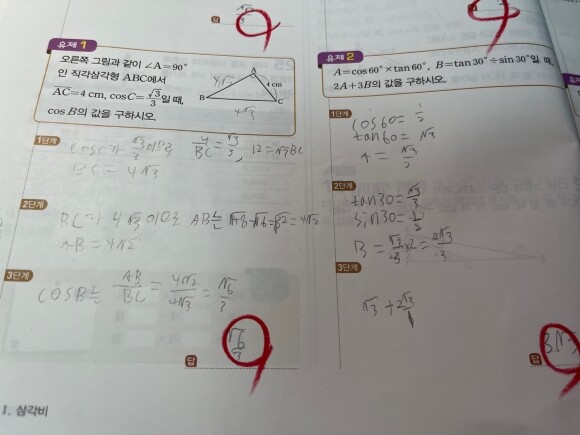 답
유제 1
오른쪽 그림과 같이 ∠A=90°
인 직각삼각형 ABC에서
AC=4 cm, cos C=√3/3일 때,
cos B의 값을 구하시오.
A
B
C
4 cm
4√2
4√3
1단계
cosC가 √3/3이므로 4/BC=√3/3, 12=√3BC
BC=4√3
2단계
BC가 4√3이므로 AB는 √48-√16=√32=4√2
AB=4√2
3단계
COSB는 AB/BC=4√2/4√3=√6/3
답
√6/3
1. 삼각비
유제 2
A=cos 60°×tan 60°, B=tan 30°÷sin 30°일 때,
2A+3B의 값을 구하시오.
1단계
cos60=1/2
tan60=√3
A=√3/2
2단계
tan30=√3/3
sin30=1/2
B=√3/3×2=2√3/3
3단계
√3+2√3
답
3√3
유제 3
1단계
2단계